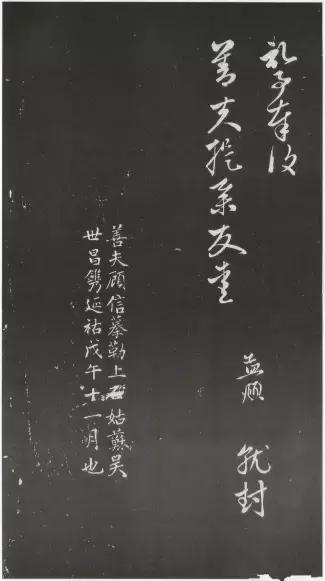 札子奉復
善夫提舉友
孟頫 謹封
善夫顧信摹勒上石姑蘇吳
世昌鐫延祐戊午十一月也